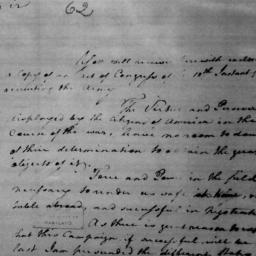 62
You will receive herewith enclosed
a Copy of an Act of Congress of 18th Instant, for
recruiting the Army
The Virtue and Perseverance
displayed by the Citizens of America in the
Cause of the war, leave no room to doubt
of their determination to obtain the great
objects of it.
Force and in the field
necessary to render us safe at home, re-
abroad, and successful in Negotiati
As there is great reason to
that this Campaign, if successful will be
last I am persuaded the different States